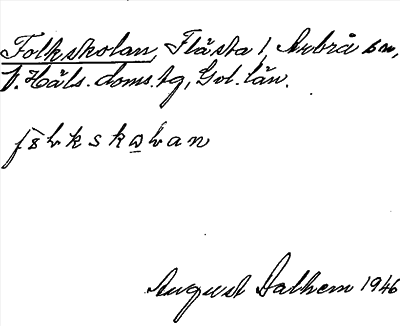 Folkskolan, Flästa 1, Arbrå sn,
V. Häls. doms. tg, Gvl. län.
fölkskωlan
August Dalhem 1946